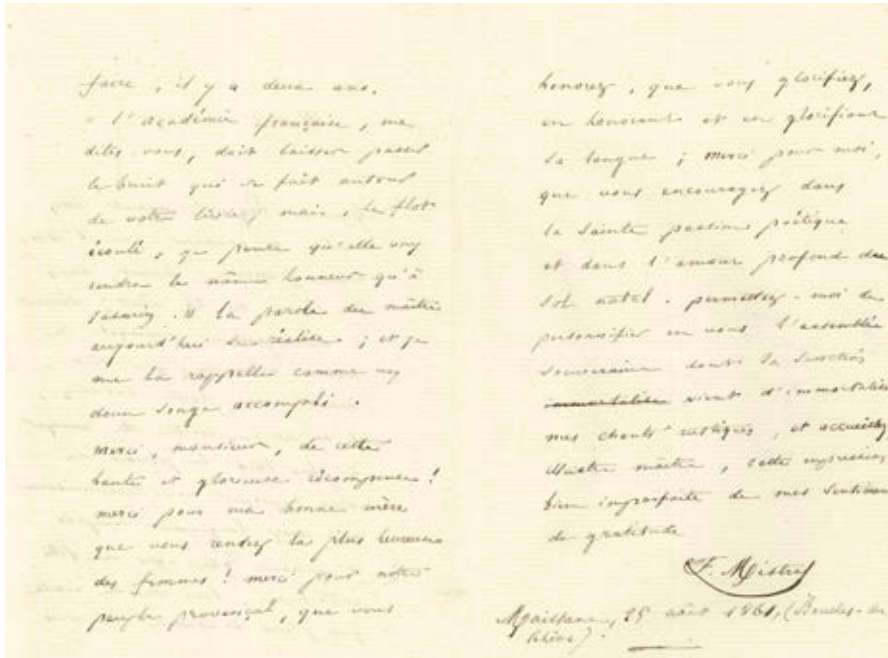 faire, il y a deux ans.
" l'académie française, me
dites vous, doit laisser passer
le bruit qui se fait autour
de votre livre; mais, le flot
écoulé, je pense qu'elle vous
rendra le même honneur qu'à
Jasmin. " la parole du maître
aujourd'hui se réalise; et je
me la rappelle comme un
doux songe accompli.
merci, monsieur, de cette
haute et glorieuse récompense!
merci pour ma bonne mère
que vous rendez la plus heureuse
des femmes! merci pour notre
peuple provençal, que vous
honorez, que vous glorifiez,
en honorant et en glorifiant
sa langue; merci pour moi,
que vous encouragez dans
la sainte passion poétique
et dans l'amour profond du
sol natal. permettez-moi de
personnifier en vous l'assemblée
souveraine dont la sanction
immortalise vient d'immortaliser
mes chants rustiques, et accueillez
illustre maître, cette expression
bien imparfaite de mes sentiments
de gratitude
F. Mistral
Maillane, 25 août 1861, (Bouches-du
Rhône).